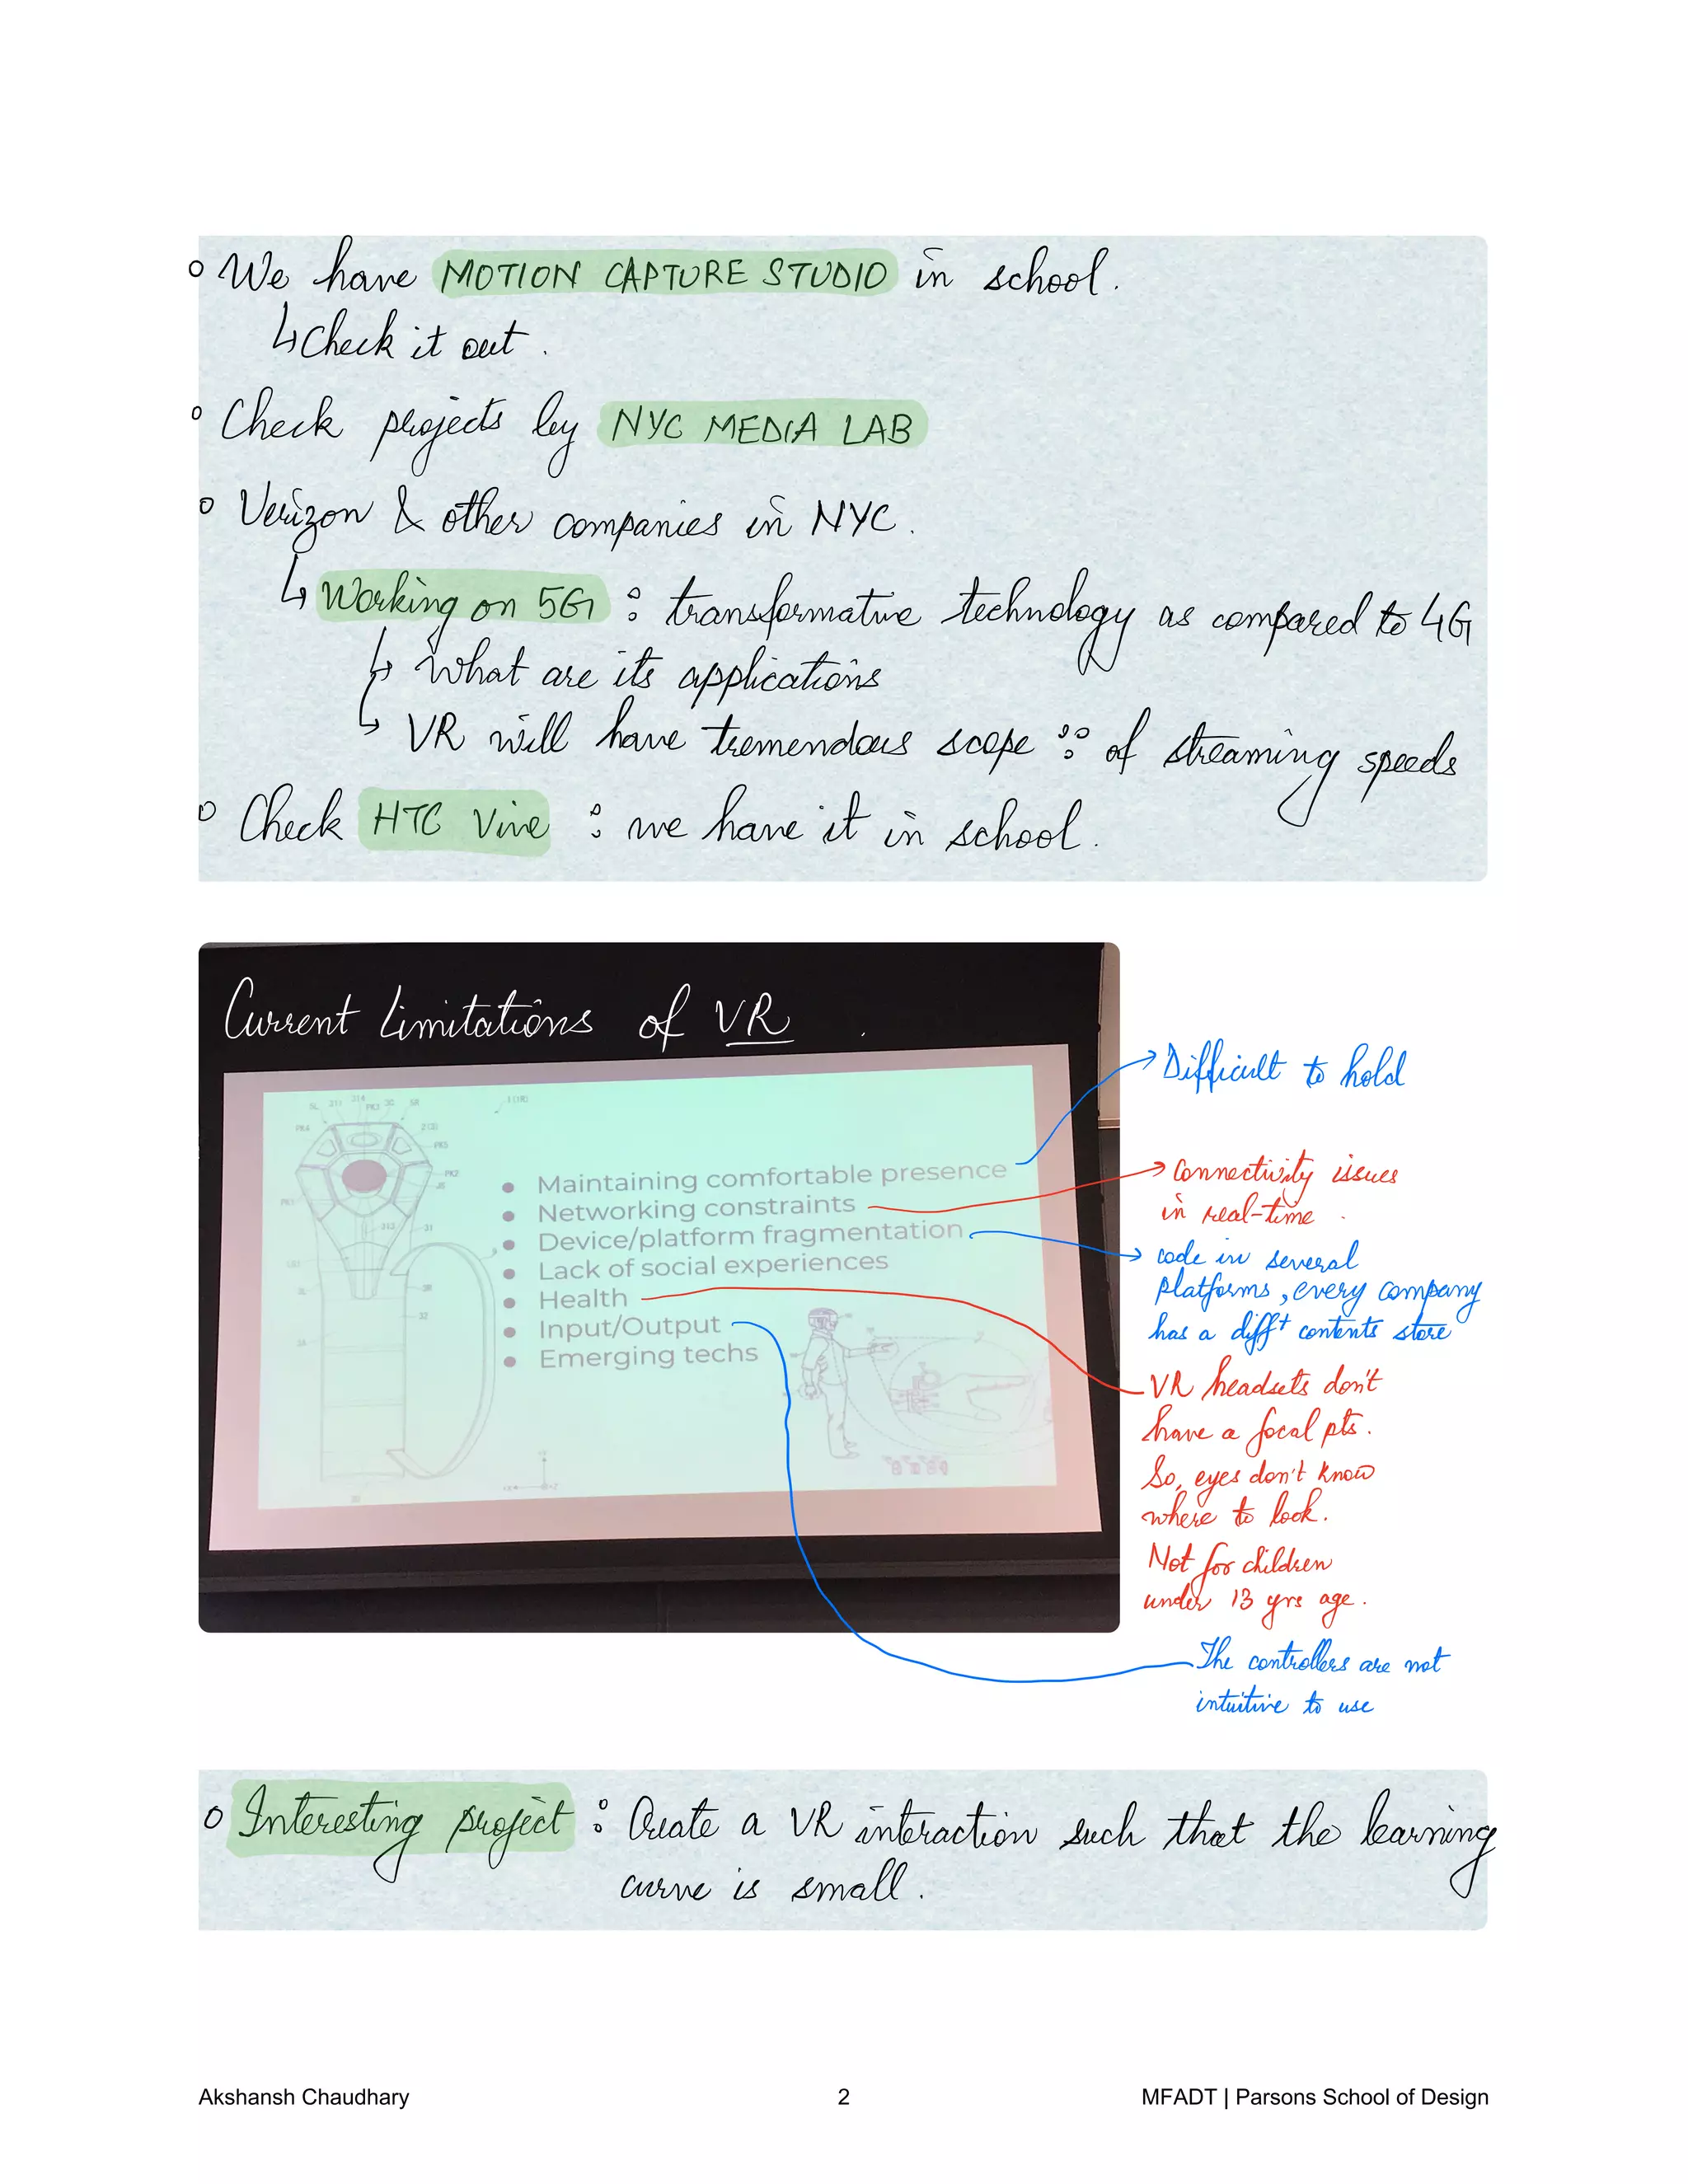 ° We have MOTION CAPTURE STUDIO in school.
↳ Check it out.
° Check projects by NYC MEDIA LAB
° Verizon & other companies in NYC.
↳ Working on 5G : transformative technology as compared to 4G
↳ What are its applications
↳ VR will have tremendous scope ∵ of streaming speeds
° Check HTC Vive : we have it in school.
Current Limitations of VR
• Maintaining comfortable presence
• Networking constraints
• Device/platform fragmentation
• Lack of social experiences
• Health
• Input/Output
• Emerging techs
→ Difficult to hold
→ Connectivity issues
in real-time.
→ code in several
platforms, every company
has a diff^t contents store
VR headsets don't
have a focal pts.
So, eyes don't know
where to look.
Not for children
under 13 yrs age.
The controllers are not
intuitive to use
° Interesting project : Create a VR interaction such that the learning
curve is small.
Akshansh Chaudhary 2 MFADT | Parsons School of Design